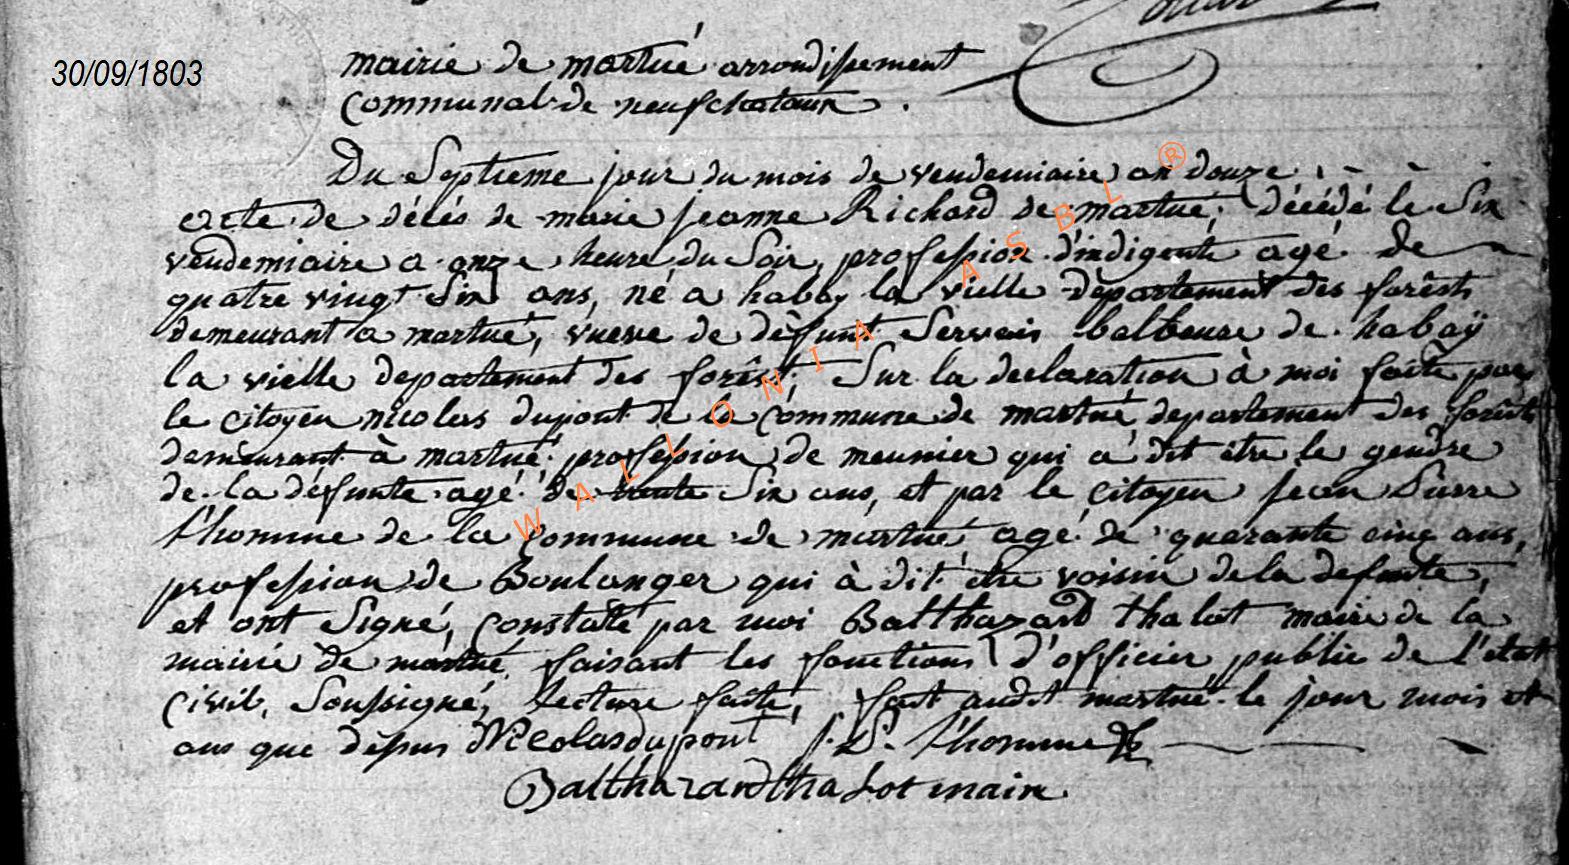 30/09/1803
mairie de martué arrondissement
communal de neufchataux.
Du Septieme jour du mois de vendemiaire an douze
acte de décés de marie jeanne Richard de martué, décédé le Six
vendemiaire a onze heure du Soir, profession d'indigente agé de
quatre vingt Six ans, né a habay la vielle département des forêsts
demeurant a martué, vueve de défunt Servais balbeure de habaÿ
la vielle departement des forêst, Sur la declaration à moi faite par
le citoyen nicolas dupont de la commune de martué departement des forêsts
demeurant à martué, profession de meunier qui a dit être le gendre
de la défunte agé de trente Six ans, et par le citoyen jean Pierre
l'homme de la commune de martué, agé de quarante cinq ans,
profession de Boulanger qui à dit être voisin de la defunte,
et ont Signé, constaté par moi Balthazard thalot maire de la
mairie de martué faisant les fonctions d'officier public de l'état
civil, Soussigné, lecture faite, fait audit martué le jour mois et
ans que dessus Nicolas dupont j. P. l'homme
Balthazard thalot maire
WALLONIA ASBL ®